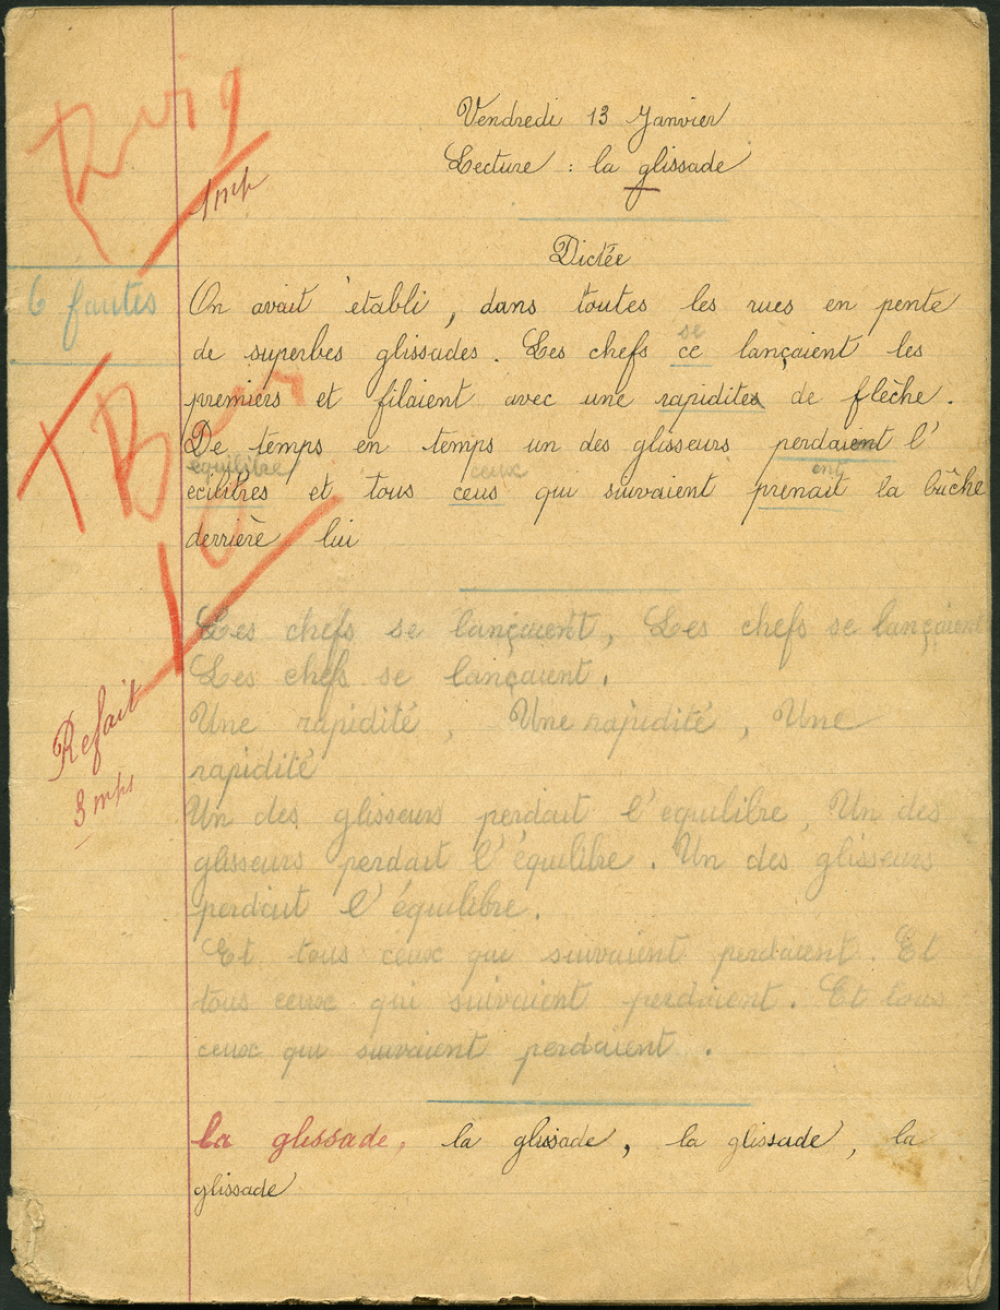 Vendredi 13 Janvier
Lecture : la glissade
1 mp
Dictée
6 fautes
On avait établi, dans toutes les rues en pente
se
de superbes glissades. Les chefs ce lançaient les
premiers et filaient avec une rapidités de flèche.
T Bien
De temps en temps un des glisseurs perdaient l'
équilibre ceux ent
écilibres et tous ceus qui suivaient prenait la bûche
10
derrière lui
Les chefs se lançaient, Les chefs se lançaient
Les chefs se lançaient.
Une rapidité, Une rapidité, Une
rapidité
Refait
3 mps
Un des glisseurs perdait l'equilibre, Un des
glisseurs perdait l'équilibre. Un des glisseurs
perdait l'équilibre.
Et tous ceux qui suivaient perdaient. Et
tous ceux qui suivaient perdaient. Et tous
ceux qui suivaient perdaient.
la glissade, la glissade, la glissade, la
glissade